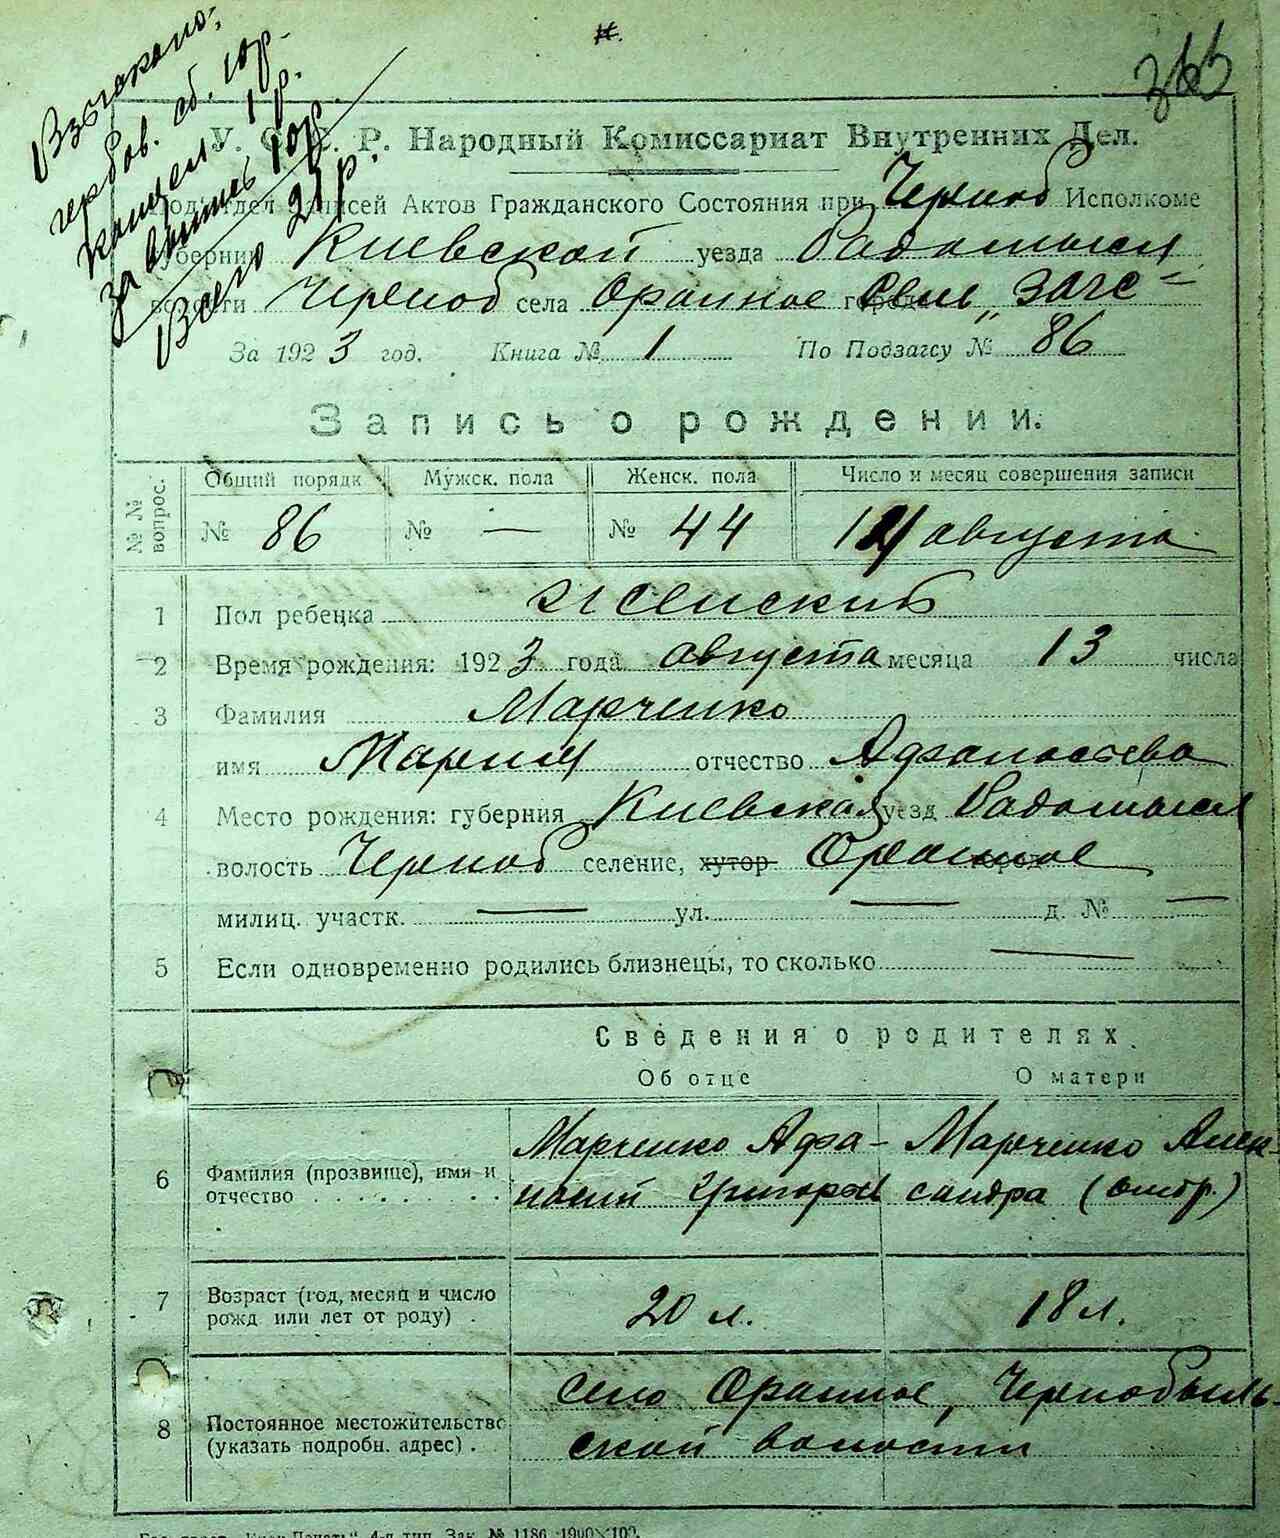 Взыскано:
гербов. сб. 10р.
канцел. 1р.
за бланк 10р
Всего 21р.
У. С. С. Р. Народный Комиссариат Внутренних Дел.
Подотдел Записей Актов Гражданского Состояния при Черноб Исполкоме
Губернии Киевской уезда Радомысл
волости Черноб села Оранное города Сель загс
За 1923 год. Книга № 1 По Подзагсу № 86
Запись о рождении.
№№ вопрос.
Общий порядк Мужск. пола Женск. пола Число и месяц совершения записи
№ 86 № — № 44 августа
1 Пол ребенка женский
2 Время рождения: 1923 года августа месяца 13 числа
3 Фамилия Марченко
имя Мария отчество Афанасьева
4 Место рождения: губерния Киевская уезд Радомысл
волость Черноб селение, хутор Оранное город
милиц. участк. — ул. — д. № —
5 Если одновременно родились близнецы, то сколько —
Сведения о родителях.
Об отце О матери
6 Фамилия (прозвище), имя и отчество
Марченко Афа- Марченко Алек-
насий Григорьев сандра
7 Возраст (год, месяц и число рожд или лет от роду) . 20 л. 18 л.
8 Постоянное местожительство (указать подробн. адрес) .
село Оранное, Чернобыль-
ской волости
4-я тип. Зак. № 1186 1900×100.